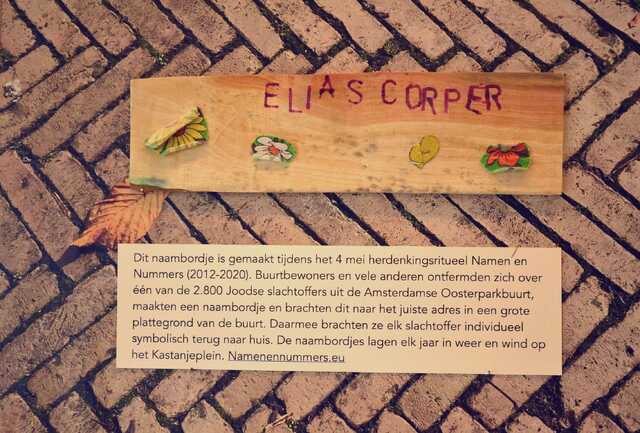 ELIAS CORPER
Dit naambordje is gemaakt tijdens het 4 mei herdenkingsritueel Namen en
Nummers (2012-2020). Buurtbewoners en vele anderen ontfermden zich over
één van de 2.800 Joodse slachtoffers uit de Amsterdamse Oosterparkbuurt,
maakten een naambordje en brachten dit naar het juiste adres in een grote
plattegrond van de buurt. Daarmee brachten ze elk slachtoffer individueel
symbolisch terug naar huis. De naambordjes lagen elk jaar in weer en wind op
het Kastanjeplein. Namenennummers.eu